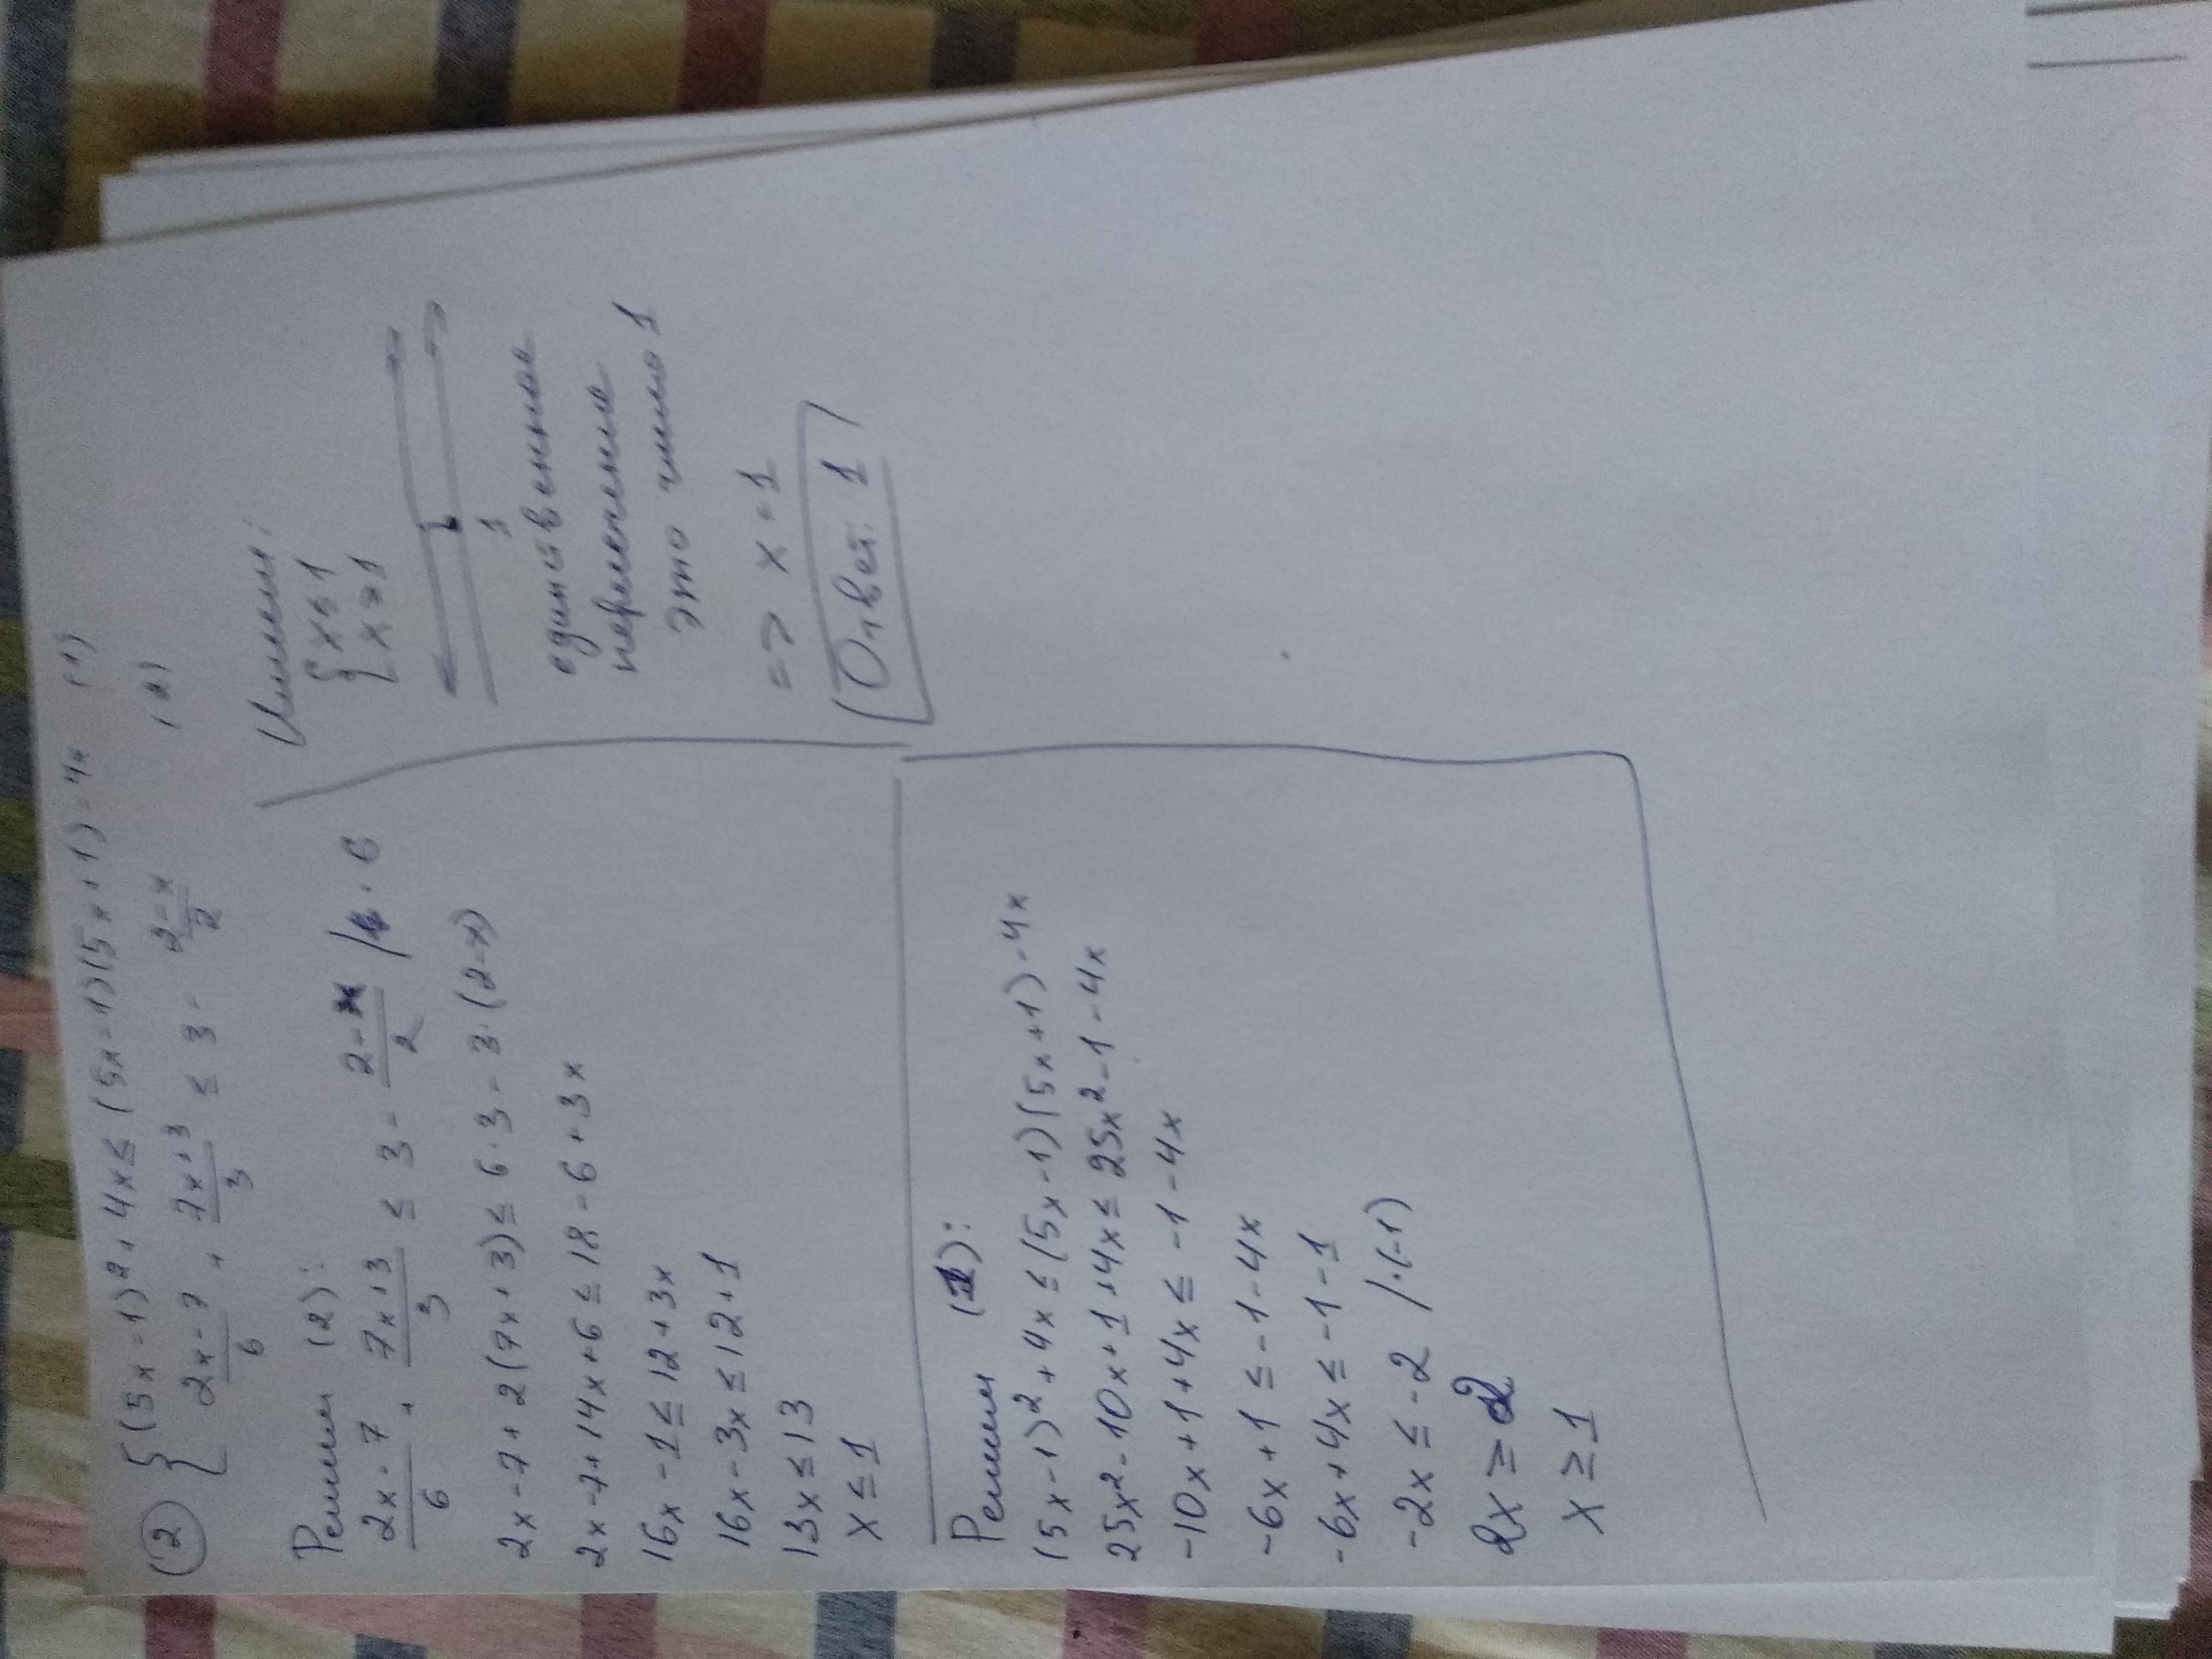 (2) { (5x-1)² + 4x ≤ (5x-1)(5x+1) - 4x (1)
(2x-7)/6 + (7x+3)/3 ≤ 3 - (2-x)/2 (2)
Решим (2):
(2x-7)/6 + (7x+3)/3 ≤ 3 - (2-x)/2 /· 6
2x-7+2(7x+3) ≤ 6·3 - 3·(2-x)
2x-7+14x+6 ≤ 18-6+3x
16x-1 ≤ 12+3x
16x-3x ≤ 12+1
13x ≤ 13
x ≤ 1
Решим (1):
(5x-1)² + 4x ≤ (5x-1)(5x+1) - 4x
25x²-10x+1+4x ≤ 25x²-1-4x
-10x+1+4x ≤ -1-4x
-6x+1 ≤ -1-4x
-6x+4x ≤ -1-1
-2x ≤ -2 /·(-1)
2x ≥ 2
x ≥ 1
Имеем:
{ x ≤ 1
x ≥ 1
1
единственное
пересечение
это число 1
=> x = 1
Ответ: 1